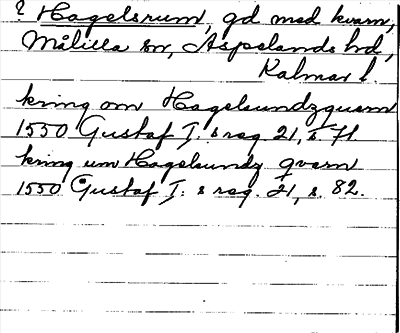 ? Hagelsrum, gd med kvarn,
Målilla sn, Aspelands hd,
Kalmar l.
kring om Hagelsundzquarn
1550 Gustaf I: s reg 21, s. 71.
kring um Hagelsundz qvarn
1550 Gustaf I: s reg. 21, s. 82.